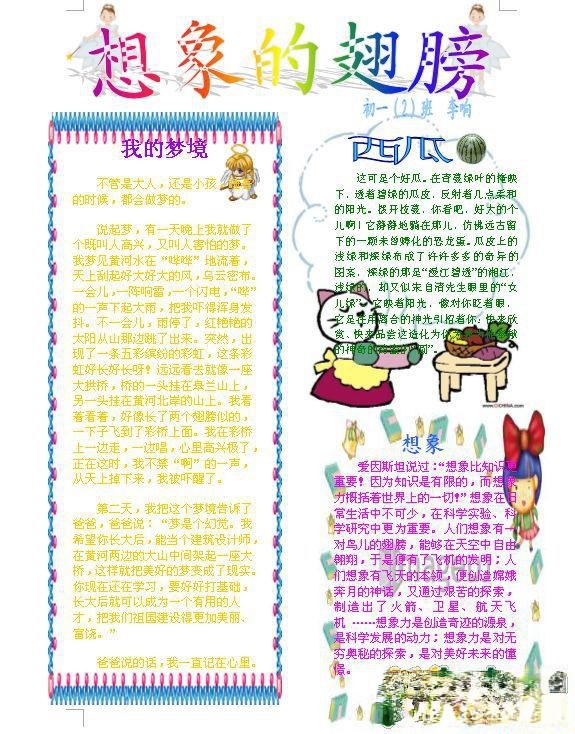 想象的翅膀
初一(2)班 李响
我的梦境
不管是大人，还是小孩，
的时候，都会做梦的。
说起梦，有一天晚上我就做了
个既叫人高兴，又叫人害怕的梦。
我梦见黄河水在“哗哗”地流着，
天上刮起好大好大的风，乌云密布。
一会儿，一阵响雷，一个闪电，“哗”
的一声下起大雨，把我吓得浑身发
抖。不一会儿，雨停了，红艳艳的
太阳从山那边跳了出来。突然，出
现了一条五彩缤纷的彩虹，这条彩
虹好长好长呀！远远看去就像一座
大拱桥，桥的一头挂在皋兰山上，
另一头挂在黄河北岸的山上。我看
着看着，好像长了两个翅膀似的，
一下子飞到了彩桥上面。我在彩桥
上一边走，一边唱，心里高兴极了，
正在这时，我不禁“啊”的一声，
从天上掉下来，我被吓醒了。
第二天，我把这个梦境告诉了
爸爸，爸爸说：“梦是个幻觉。我
希望你长大后，能当个建筑设计师，
在黄河两边的大山中间架起一座大
桥，这样就把美好的梦变成了现实。
你现在还在学习，要好好打基础，
长大后就可以成为一个有用的人
才，把我们祖国建设得更加美丽、
富饶。”
爸爸说的话，我一直记在心里。
西瓜
这可是个好瓜。在青蔓绿叶的掩映
下，透着碧绿的瓜皮，反射着几点柔和
的阳光。拨开枝蔓，你看吧，好大的个
儿啊！它静静地躺在那儿，仿佛远古留
下的一颗未曾孵化的恐龙蛋。瓜皮上的
浅绿和深绿布成了许许多多的奇异的
图案，深绿的那是“漫江碧透”的湘江，
浅绿的，却又似朱自清先生眼里的“女
儿绿”，它映着阳光，像对你眨着眼，
它是在用离合的神光引招着你：快来欣
赏、快来品尝这造化为你
的神奇的
www.CHINA.com
想象
爱因斯坦说过：“想象比知识更
重要！因为知识是有限的，而想象
力概括着世界上的一切！”想象在日
常生活中不可少，在科学实验、科
学研究中更为重要。人们想象有一
对鸟儿的翅膀，能够在天空中自由
翱翔，于是便有了飞机的发明；人
们想象有飞天的本领，便创造嫦娥
奔月的神话，又通过艰苦的探索，
制造出了火箭、卫星、航天飞
机 ------想象力是创造奇迹的源泉，
是科学发展的动力；想象力是对无
穷奥秘的探索，是对美好未来的憧
憬。